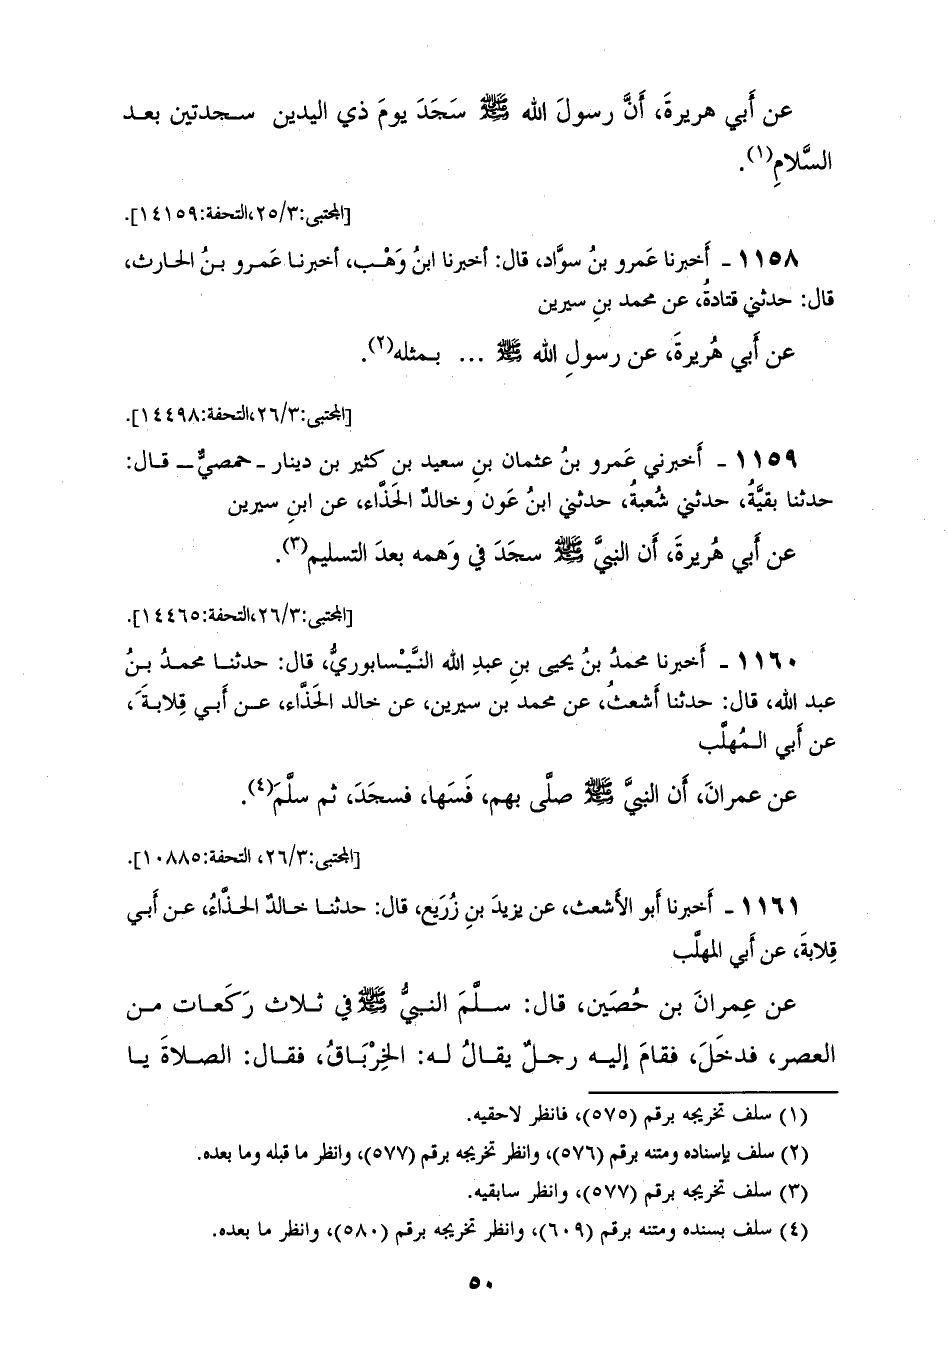 عن أَبي هريرةَ، أَنَّ رسولَ الله ﷺ سَجَدَ يومَ ذي اليدين سجدتين بعد
السَّلامِ(١).
[المجتبى:٢٥/٣،التحفة:١٤١٥٩].
١١٥٨ ـ أَخبرنا عَمرو بنُ سوَّاد، قال: أخبرنا ابنُ وَهْب، أخبرنا عَمرو بنُ الحارث،
قال: حدثني قتادةُ، عن محمد بنِ سيرين
عن أَبي هُريرةَ، عن رسولِ الله ﷺ ... بمثله(٢).
[المجتبى:٢٦/٣،التحفة:١٤٤٩٨].
١١٥٩ ـ أَخبرني عَمرو بنُ عثمان بنِ سعيد بن كثير بن دينار ـ حمصيٌّ ـ قال:
حدثنا بقيَّةُ، حدثني شُعبةُ، حدثني ابنُ عَون وخالدٌ الحَذَّاء، عن ابنِ سيرين
عن أَبي هُريرةَ، أن النبيَّ ﷺ سجَدَ في وَهمه بعدَ التسليم(٣).
[المجتبى:٢٦/٣،التحفة:١٤٤٦٥].
١١٦٠ ـ أَخبرنا محمدُ بنُ يحيى بنِ عبدِ الله النَّيْسابوريُّ، قال: حدثنا محمدُ بنُ
عبد الله، قال: حدثنا أشعثُ، عن محمد بن سيرين، عن خالد الحَذَّاء، عن أَبي قِلابةَ،
عن أَبي المُهلَّب
عن عمرانَ، أن النبيَّ ﷺ صلَّى بهم، فَسَها، فسجَدَ، ثم سلَّمَ(٤).
[المجتبى:٢٦/٣، التحفة:١٠٨٨٥].
١١٦١ ـ أَخبرنا أَبو الأَشعث، عن يزيدَ بنِ زُرَيع، قال: حدثنا خالدٌ الحذَّاءُ، عن أَبي
قِلابةَ، عن أَبي المهلَّب
عن عِمرانَ بن حُصَين، قال: سلَّمَ النبيُّ ﷺ في ثلاث رَكَعات من
العصر، فدخَلَ، فقامَ إليه رجلٌ يقالُ له: الخِرْبَاقُ، فقال: الصلاةَ يا
(١) سلف تخريجه برقم (٥٧٥)، فانظر لاحقيه.
(٢) سلف بإسناده ومتنه برقم (٥٧٦)، وانظر تخريجه برقم (٥٧٧)، وانظر ما قبله وما بعده.
(٣) سلف تخريجه برقم (٥٧٧)، وانظر سابقيه.
(٤) سلف بسنده ومتنه برقم (٦٠٩)، وانظر تخريجه برقم (٥٨٠)، وانظر ما بعده.
٥٠